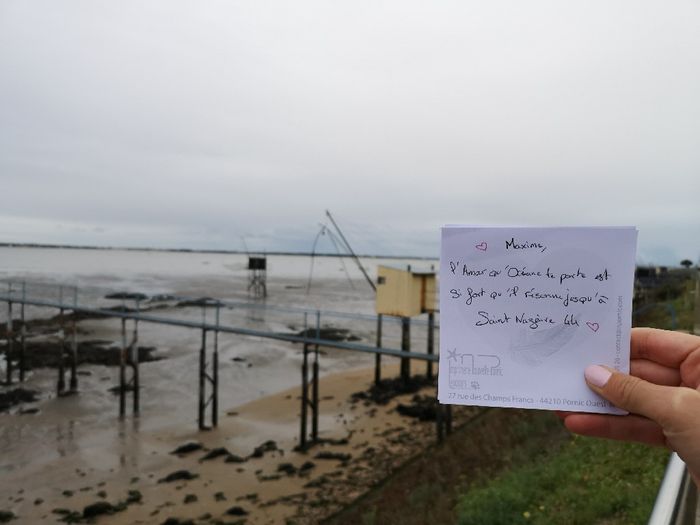 Maxime,
l'Amour qu'Océane te porte est
si fort qu'il résonne jusqu'à
Saint Nazaire 44
27 rue des Champs Francs - 44210 Pornic